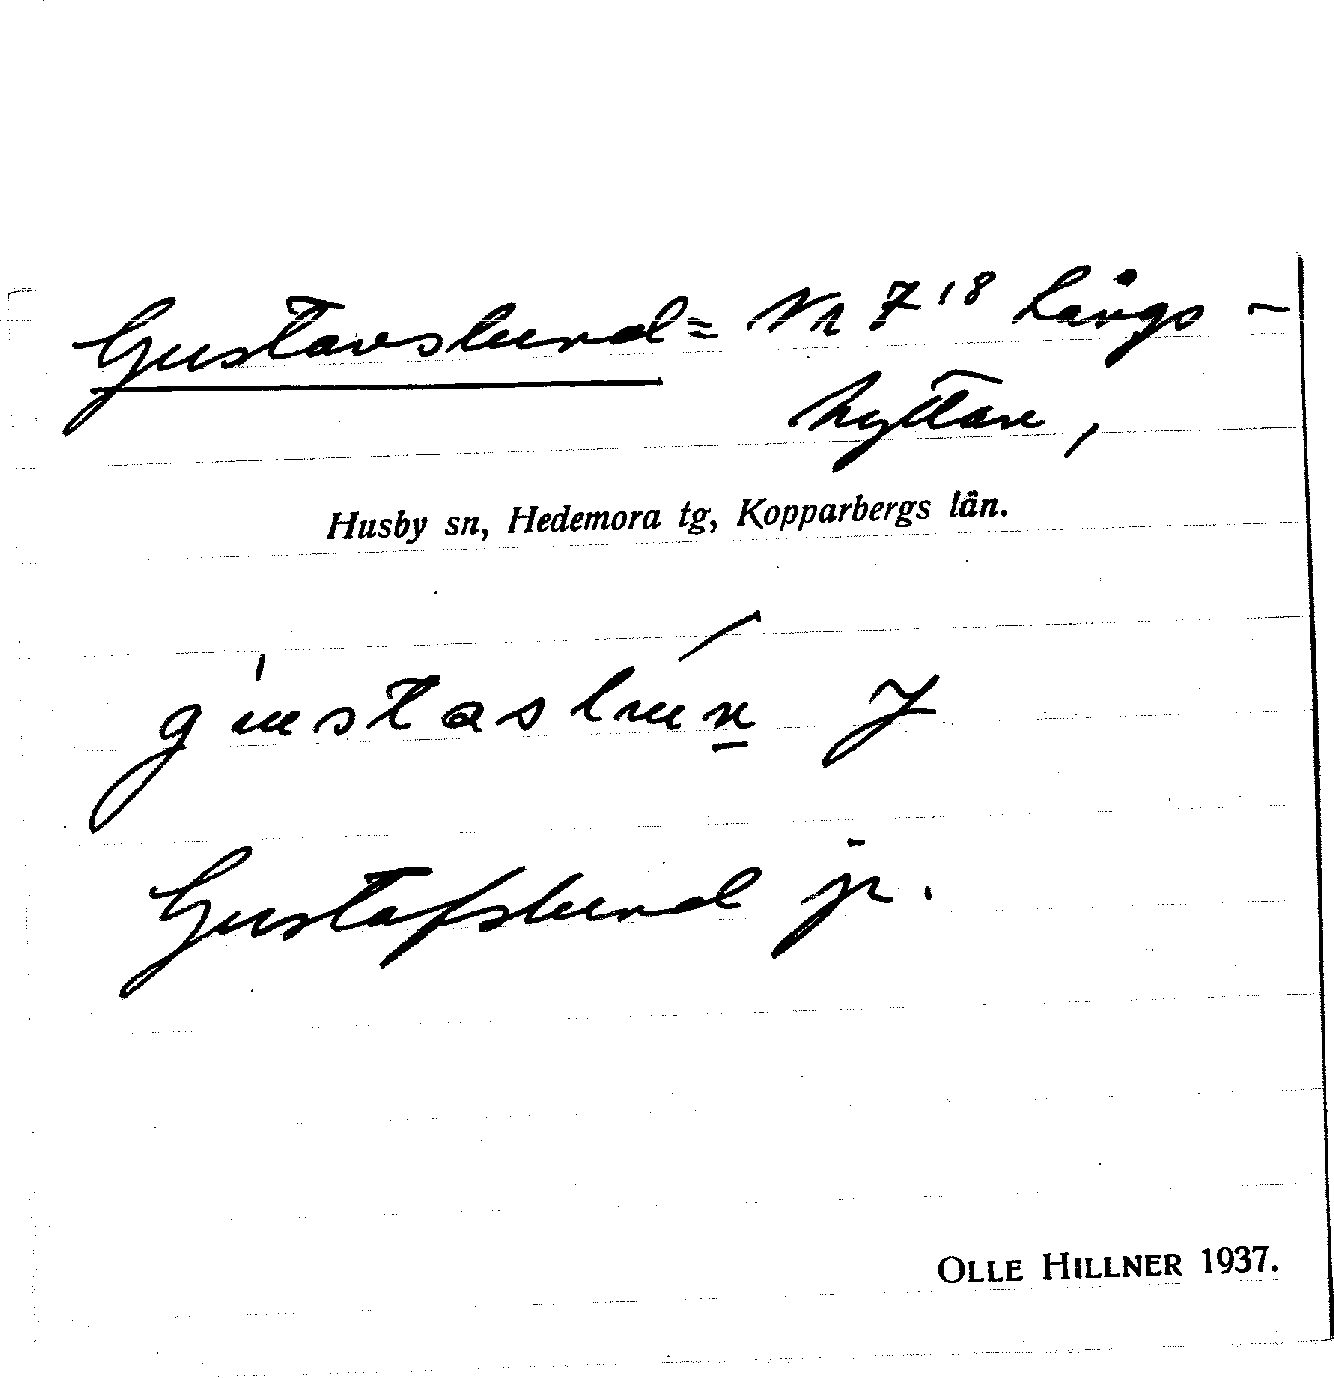 Gustavslund = Nr 7¹⁸ Långs-
hyttan,
Husby sn, Hedemora tg, Kopparbergs län.
Gustafslund jr.
OLLE HILLNER 1937.